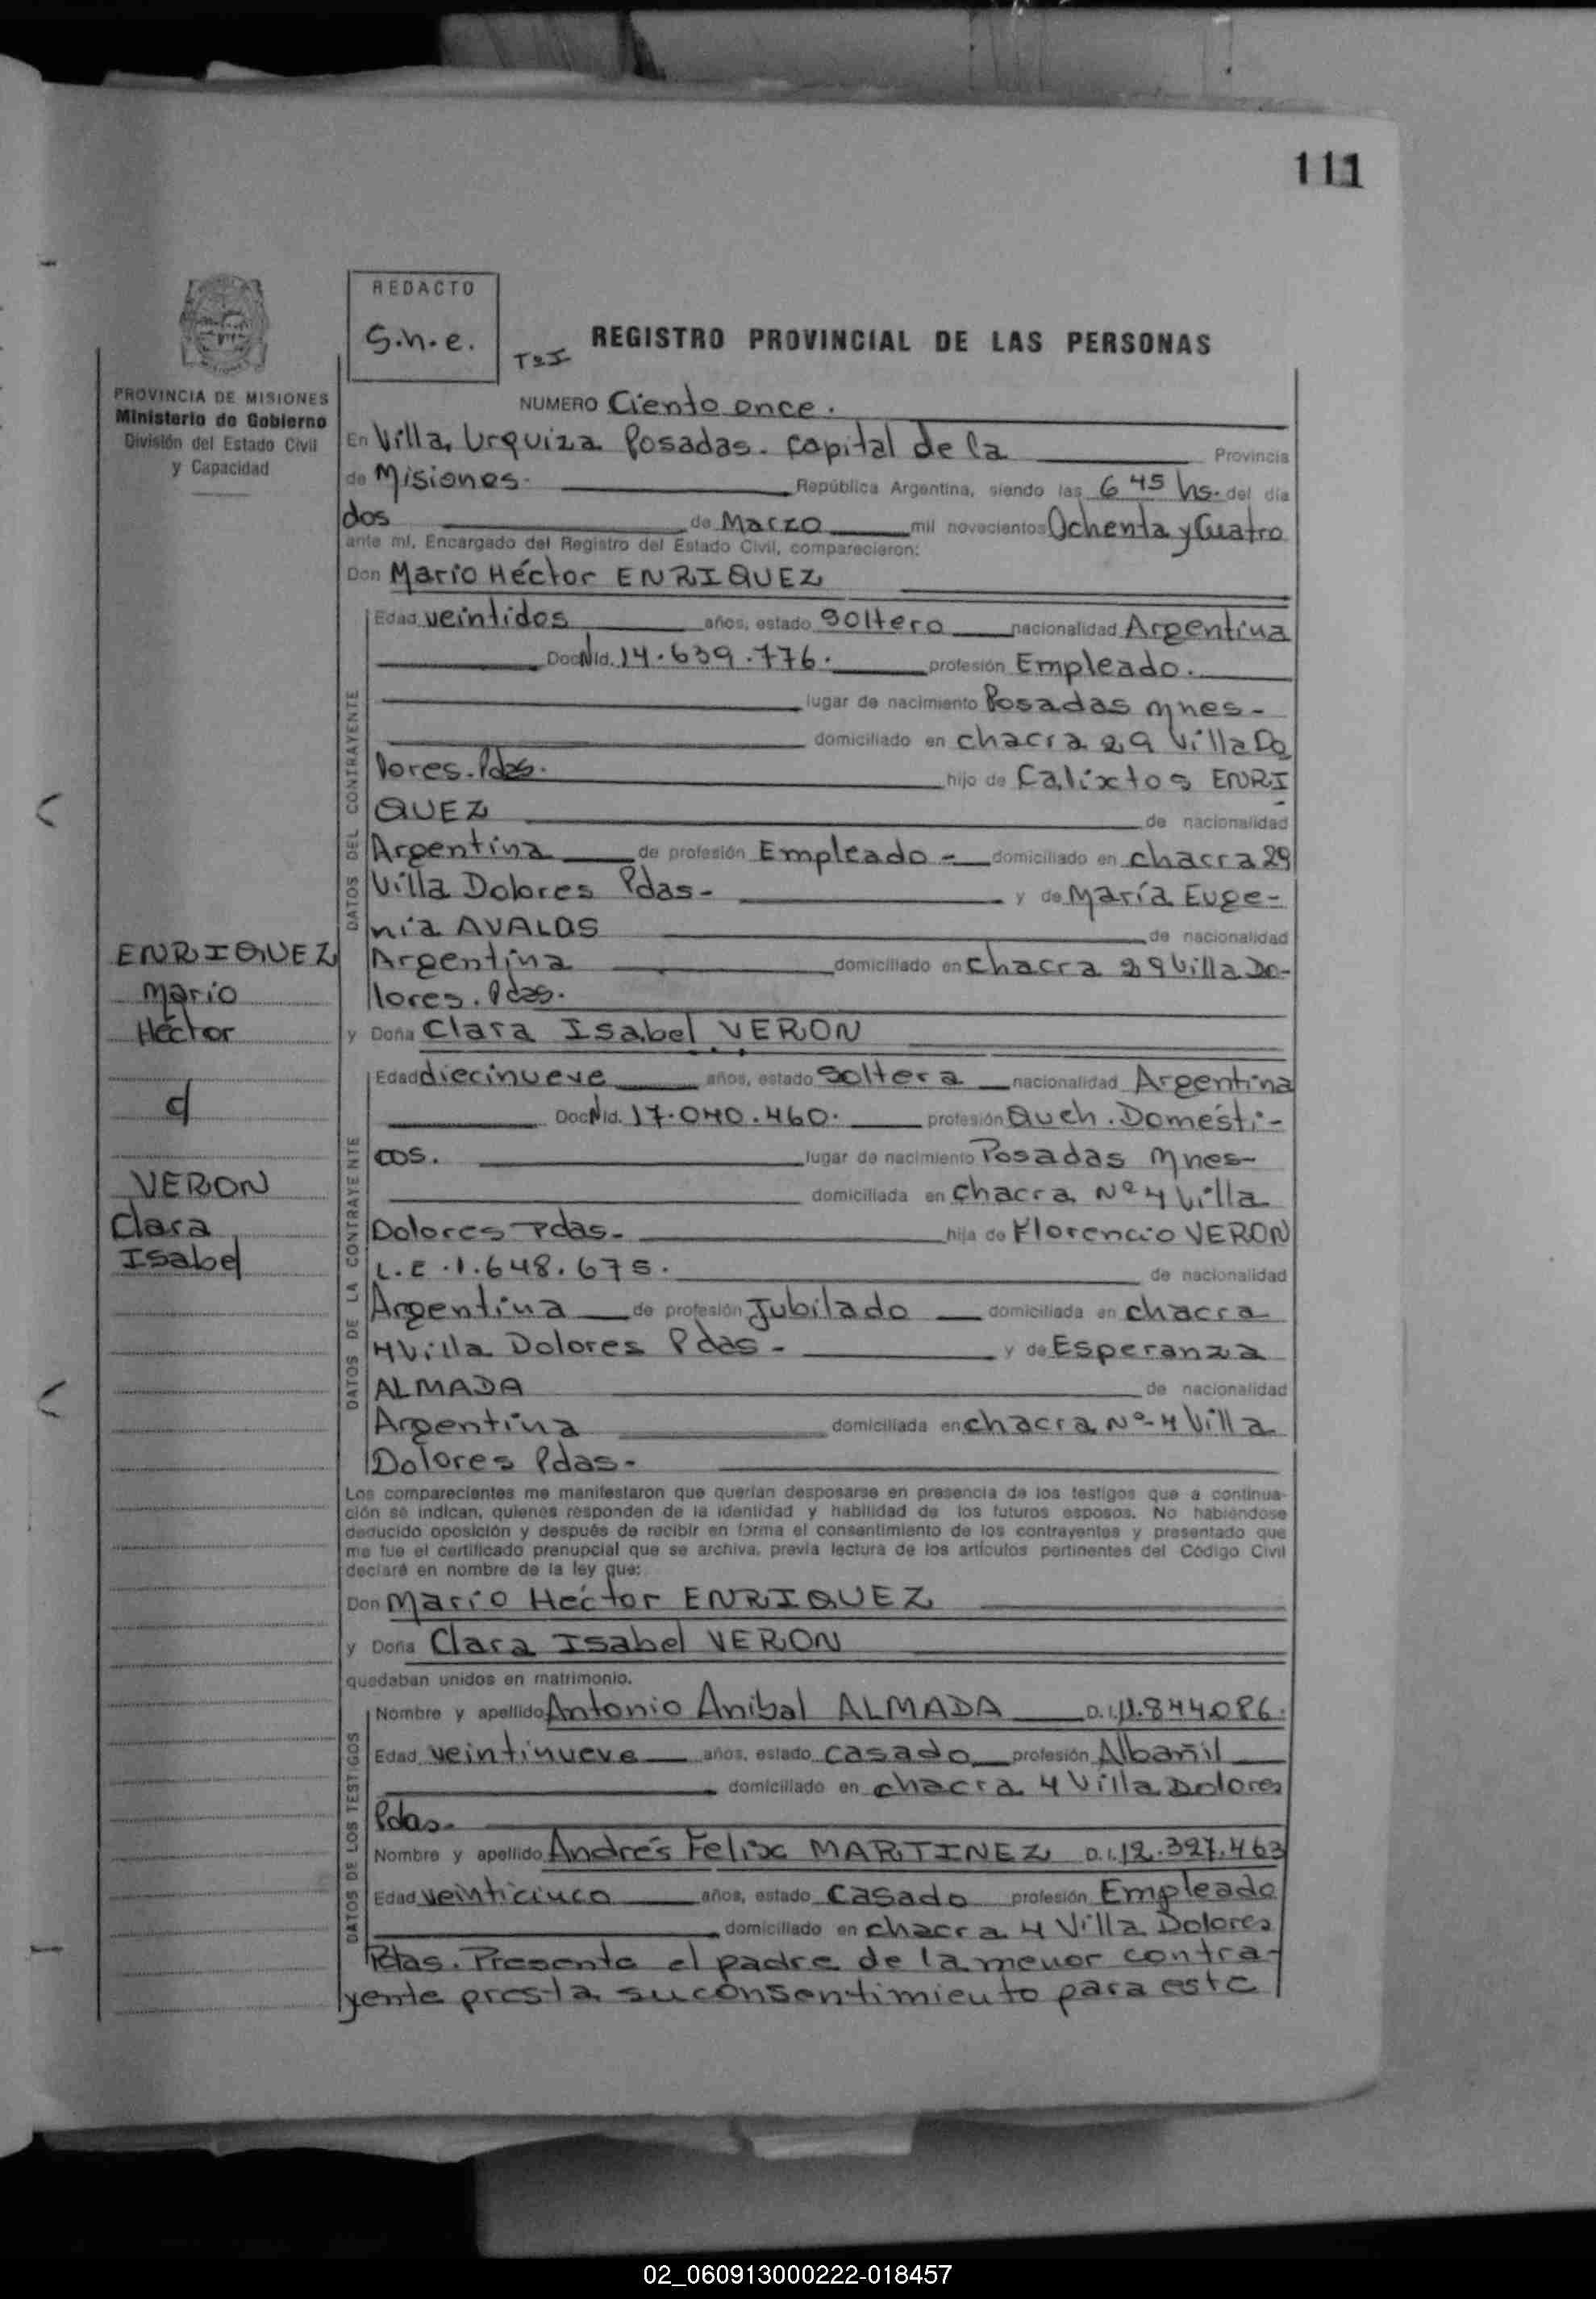 111
REDACTO
S.h.e.
T2I
REGISTRO PROVINCIAL DE LAS PERSONAS
PROVINCIA DE MISIONES
Ministerio de Gobierno
División del Estado Civil
y Capacidad
NUMERO Ciento once.
En Villa Urquiza Posadas. Capital de la Provincia
de Misiones. República Argentina, siendo las 6 45 hs. del día
dos de Marzo mil novecientos Ochenta y Cuatro
ante mí, Encargado del Registro del Estado Civil, comparecieron:
Don Mario Héctor ENRIQUEZ
DATOS DEL CONTRAYENTE
Edad veintidos años, estado soltero nacionalidad Argentina
Doc.N Id. 14.639.776. profesión Empleado.
lugar de nacimiento Posadas Mnes-
domiciliado en chacra 29 Villa Do
lores. Pdas. hijo de Calixtos ENRI
QUEZ de nacionalidad
Argentina de profesión Empleado - domiciliado en chacra 29
Villa Dolores Pdas- y de María Euge-
nia AVALOS de nacionalidad
Argentina domiciliado en chacra 29 Villa Do-
lores. Pdas.
ENRIQUEZ
Mario
Héctor
y Doña Clara Isabel VERON
c/
VERON
Clara
Isabel
DATOS DE LA CONTRAYENTE
Edad diecinueve años, estado soltera nacionalidad Argentina
Doc.N Id. 17.040.460. profesión Queh. Domésti-
cos. lugar de nacimiento Posadas Mnes-
domiciliada en chacra Nº 4 Villa
Dolores Pdas- hija de Florencio VERON
L.E.1.648.675. de nacionalidad
Argentina de profesión Jubilado domiciliada en chacra
4 Villa Dolores Pdas- y de Esperanza
ALMADA de nacionalidad
Argentina domiciliada en chacra Nº-4 Villa
Dolores Pdas-
Los comparecientes me manifestaron que querían desposarse en presencia de los testigos que a continua-
ción se indican, quienes responden de la identidad y habilidad de los futuros esposos. No habiéndose
deducido oposición y después de recibir en forma el consentimiento de los contrayentes y presentado que
me fue el certificado prenupcial que se archiva, previa lectura de los artículos pertinentes del Código Civil
declaré en nombre de la ley que:
Don Mario Héctor ENRIQUEZ
y Doña Clara Isabel VERON
quedaban unidos en matrimonio.
DATOS DE LOS TESTIGOS
Nombre y apellido Antonio Anibal ALMADA D.I. 11.844.086.
Edad veintinueve años, estado casado profesión Albañil
domiciliado en chacra 4 Villa Dolores
Pdas-
Nombre y apellido Andrés Felix MARTINEZ D.I. 12.327.463
Edad veinticinco años, estado casado profesión Empleado
domiciliado en chacra 4 Villa Dolores
Pdas. Presente el padre de la menor contra-
yente presta su consentimiento para este
02_060913000222-018457